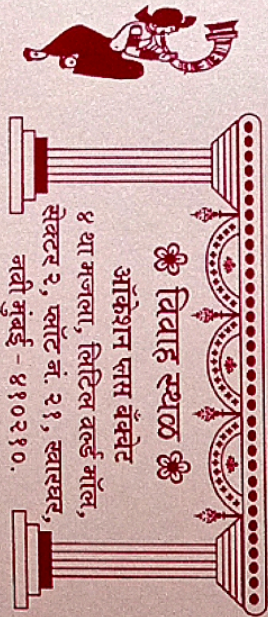 विवाह स्थळ
ऑकेशन प्लस बँक्वेट
४ था मजला, लिटिल वर्ल्ड मॉल,
सेक्टर २, प्लॉट नं. २१, खारघर,
नवी मुंबई - ४१०२१०.